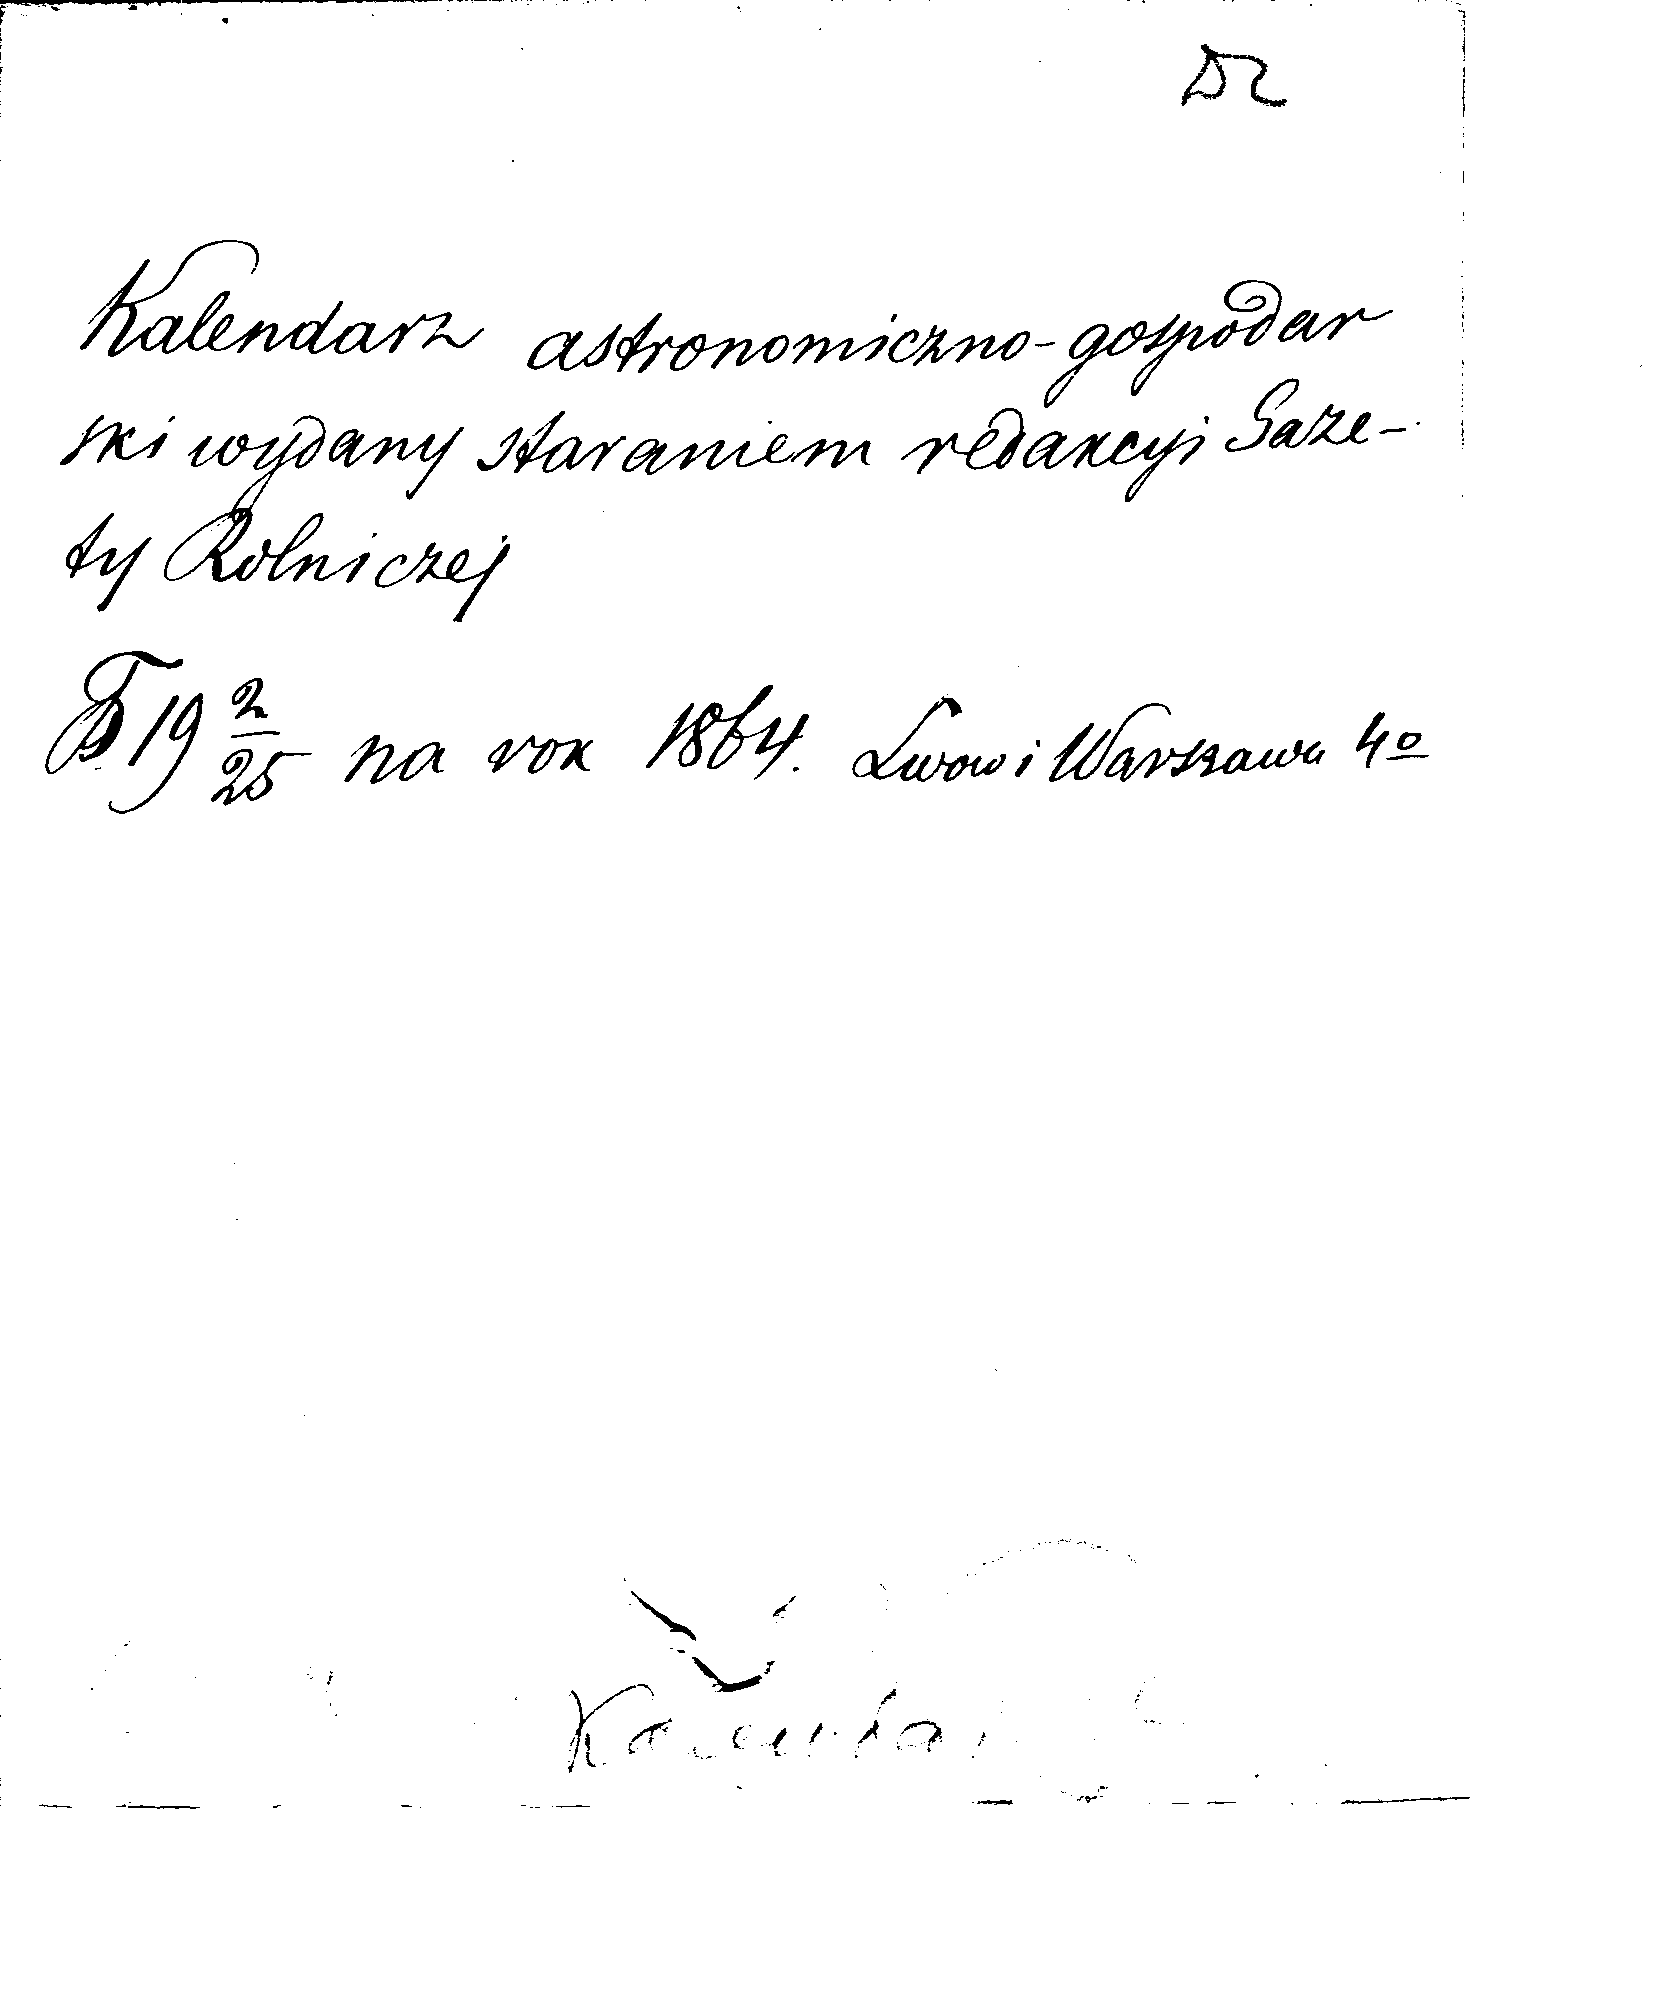 Dz
Kalendarz astronomiczno-gospodar
ski wydany staraniem redakcyi Gaze-
ty Rolniczej
B 19 2/25 na rok 1864. Lwow i Warszawa 4o
Kalenda